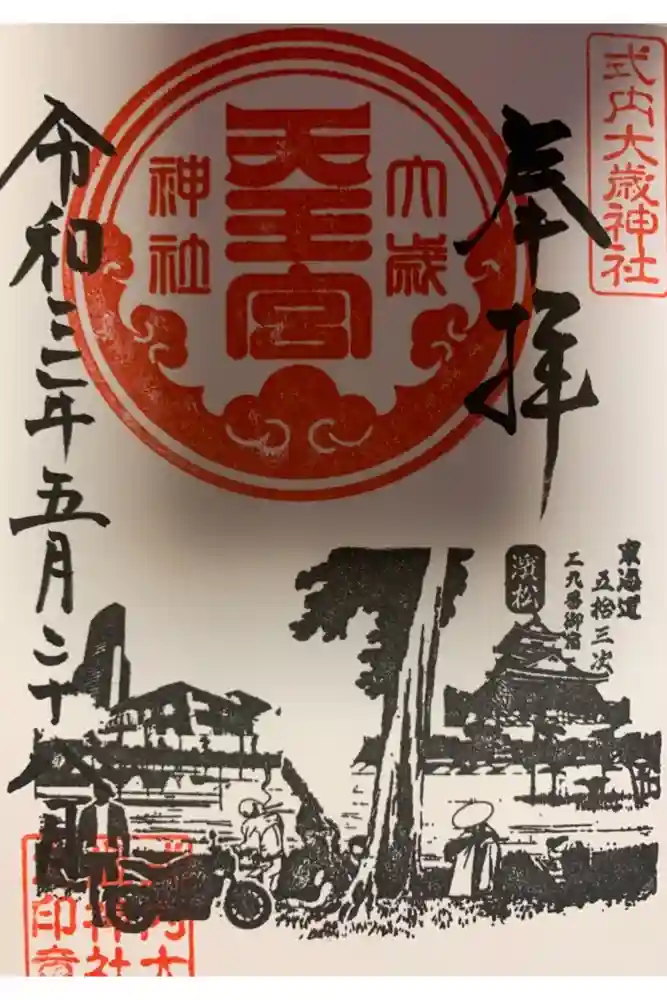 式内大歳神社
奉拝
大歳
天王宮
神社
令和三年五月二十八日
東海道
五拾三次
二九番御宿
濱松